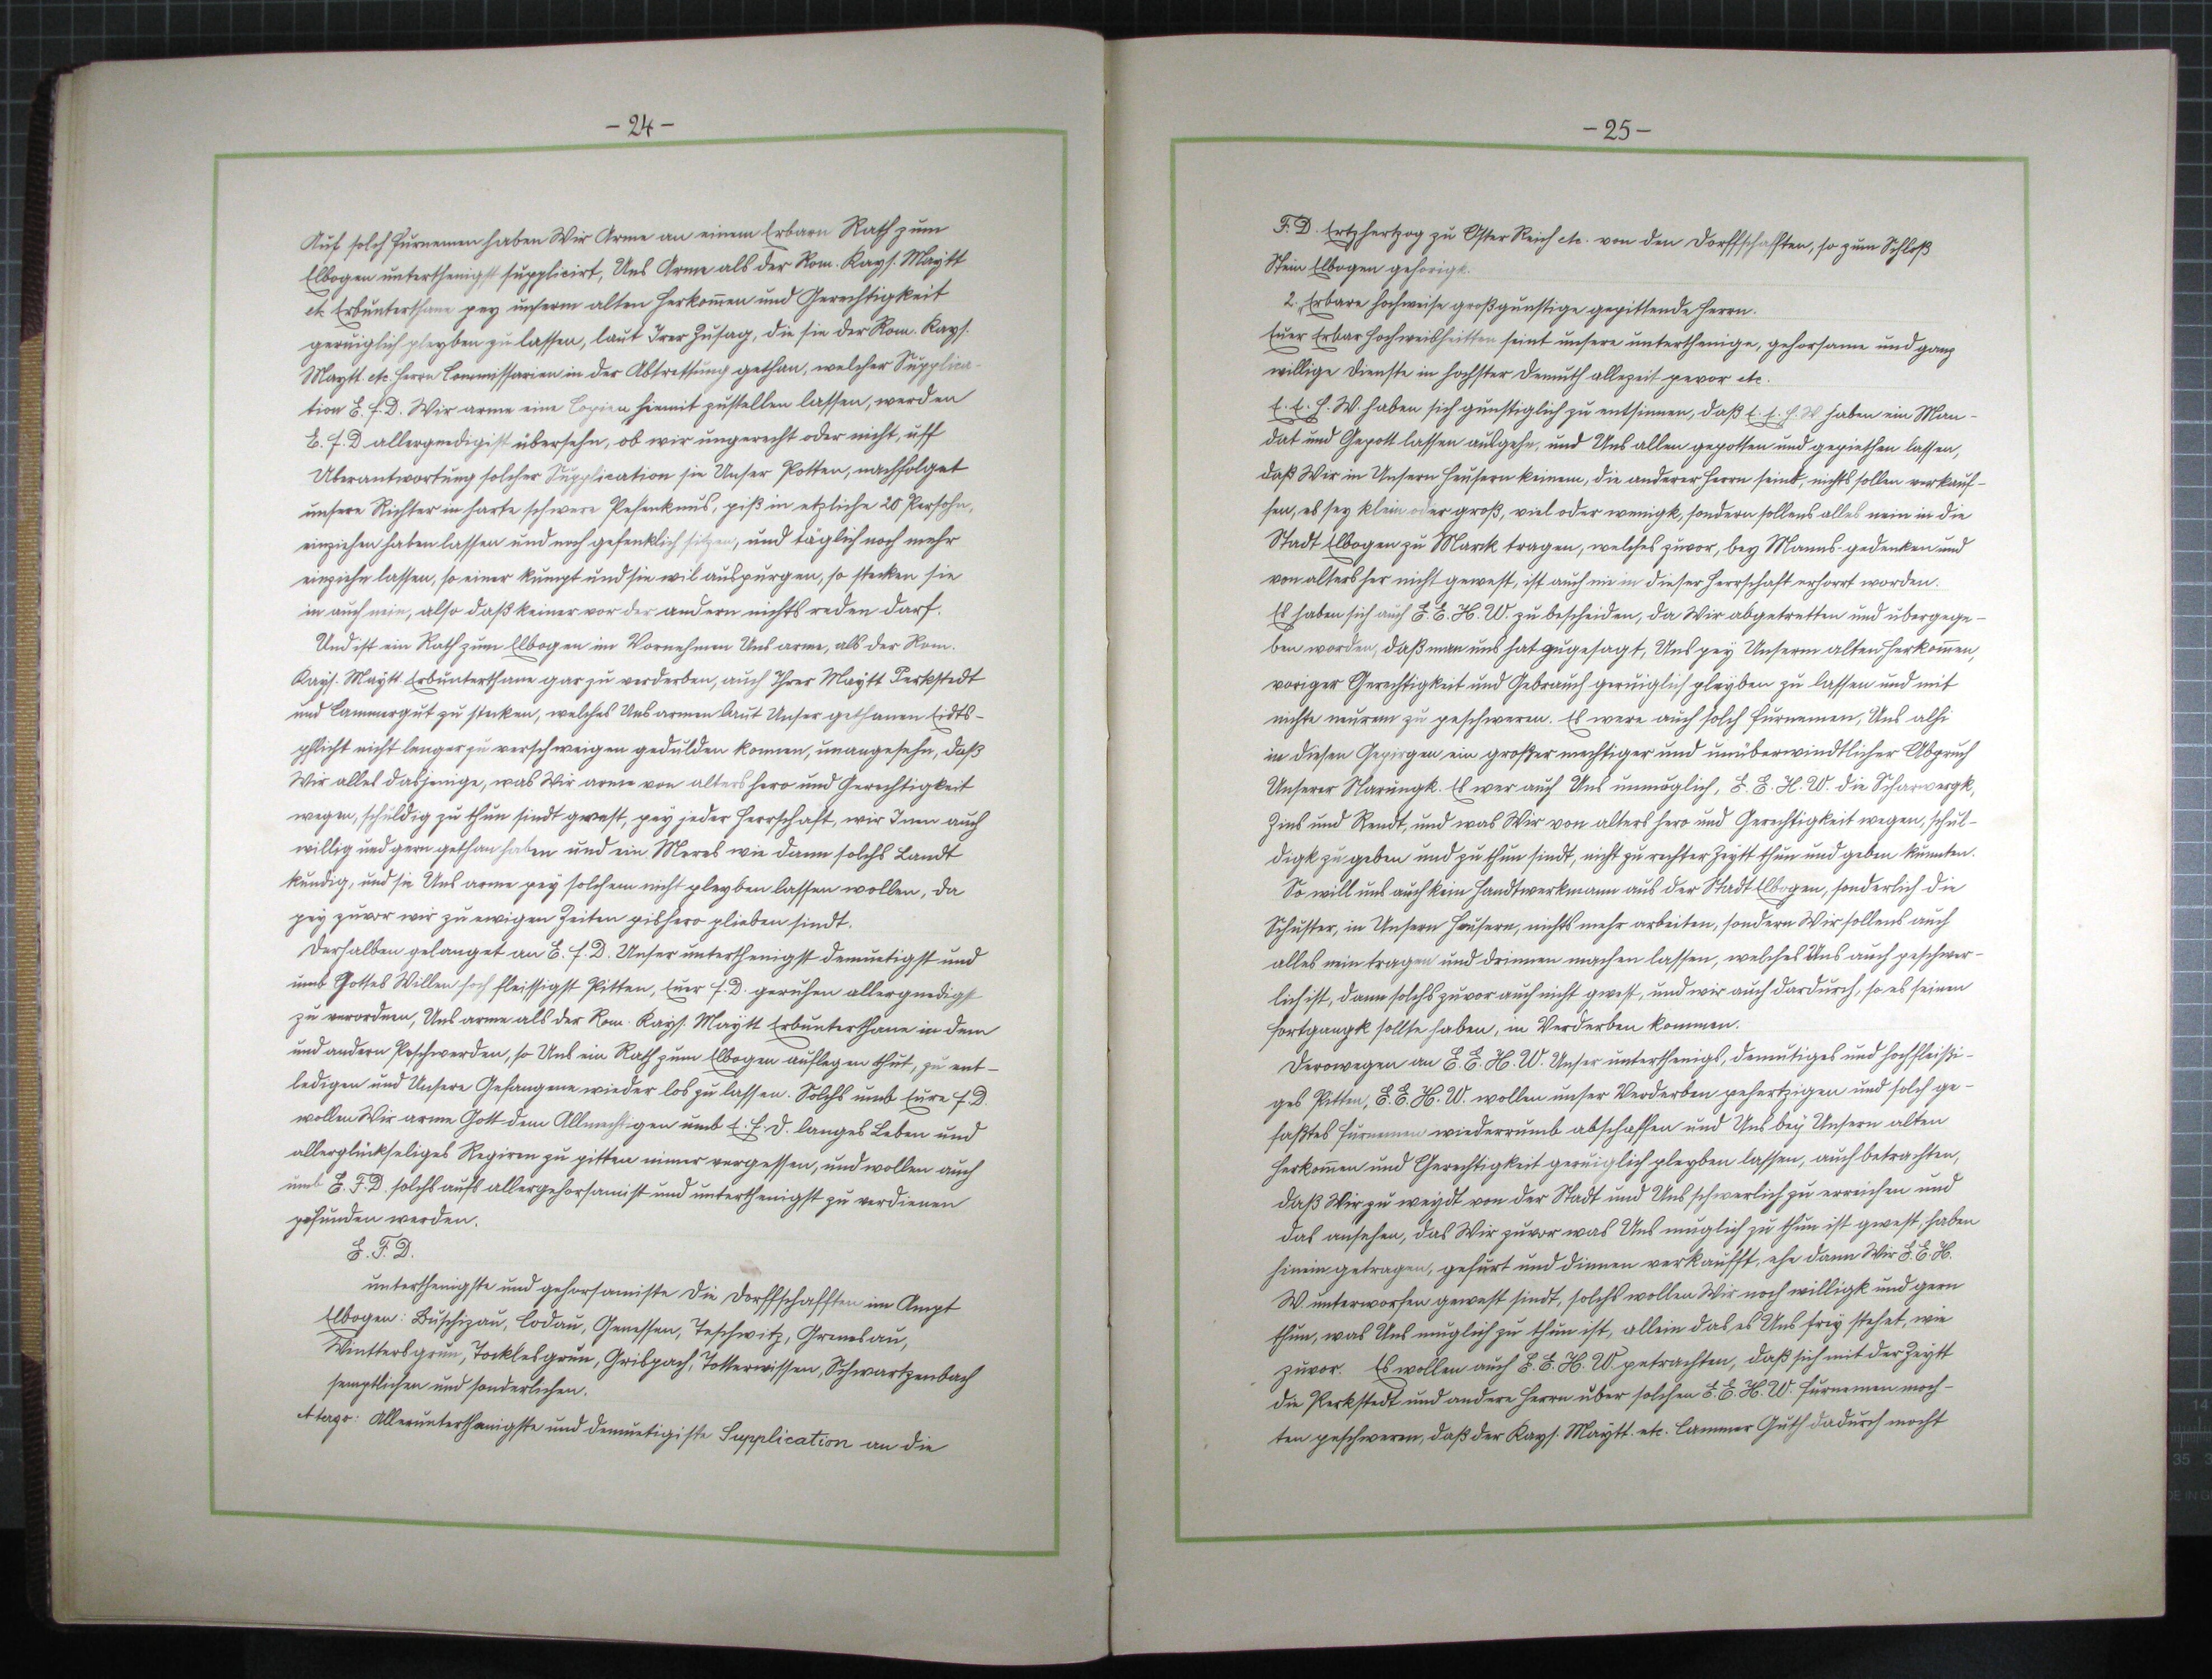 - 24 -
Auf solch Furnemen haben Wir Arme an einem Erbarn Rath zum
Elbogen unterthenigst supplicirt, Uns Arme als der Rom. Kays. Maytt
etc. Erbunterthane pey unserm alten Herkom̄en und Gerechtigkeit
geruiglich pleyben zu lassen, laut Irer Zusag, die sie der Rom. Kays.
Maytt. etc. Herrn Commissarien in der Abtrettung gethan, welcher Supplica-
tion E. F. D. Wir arme eine Copien hiemit zustellen lassen, werden
E. F. D allergnedigist übersehn, ob wir ungerecht oder nicht, uff
Uberantwortung solcher Supplication sie Unser Potten, nachfolget
unsere Richter in harte schwere Pefenknus, piß in etzliche 20 Persohn,
einziehen haben lassen und noch gefenklich sitzen, und täglich noch mehr
einziehn lassen, so einer kumpt und sie wil auspurgen, so stecken sie
in auch nein, also daß keiner vor der andern nichts reden darf.
Und ist ein Rath zum Elbogen im Vornehmen Uns arme, als der Rom.
Kays. Maytt Erbunterthane gar zu verderben, auch Ihrer Maytt Perkstedt
und Cammergut zu stecken, welches Uns armen laut Unser gethanen Eidts-
pflicht nicht lenger zu verschweigen gedulden konnen, unangesehn, daß
Wir alles dasjenige, was Wir arme von alters hero und Gerechtigkeit
wegen, schuldig zu thun sindt gwest, pey jeder Herrschaft, wir Inen auch
willig und gern gethan haben und ein Meres wie dann solchs Landt
kundig, und sie Uns arme pey solchem nicht pleyben lassen wollen, da
pey zuvor wir zu ewigen Zeiten pishero plieben sindt.
Derhalben gelanget an E. F. D. Unser unterthenigst demuetigst und
umb Gottes Willen hoch fleissigst Pitten, Euer F. D. geruhen allergnedigst
zu verordnen, Uns arme als der Rom. Kays. Maytt Erbunterthane in dem
und andern Poschwerden, so Uns ein Rath zum Elbogen auflegen thut, zu ent-
ledigen und Unsere Gefangene wieder los zu lassen. Solchs umb Eure F. D.
wollen Wir arme Gott dem Allmechtigen umb E. F. D. langes Leben und
allerglückseliges Regiren zu pitten nimer vergessen, und wollen auch
umb E. F. D. solchs aufs allergehorsamist und unterthenigst zu verdienen
gefunden werden.
E. F. D.
unterthenigste und gehorsamiste Die Dorffschafften im Ampt
Elbogen: Buschizau, Lodau, Genessen, Teschwitz, Grenesau,
Winttersgrün, Tocklesgrün, Grispach, Totterwissen, Schwartzenbach
semptlichen und sonderlichen.
A tergo: Allerunterthanigste und demuetigiste Supplication an die
- 25 -
F. D. Ertzhertzog zu Oster Reich etc. von den Dorffschafften, so zum Schloß
Stein Elbogen gehorigk.
2. Erbare hochweise großgunstige gepittende Herrn.
Euer Erbar Hochweisheitten seint unsere unterthenige, gehorsame und ganz
willige Dienste in hochster Demuth allezeit pevor etc.
E. E. H. W. haben sich gunstiglich zu entsinnen, daß E. E. H. W. haben ein Man-
dat und Gepott lassen ausgehn, und Uns allen gepotten und gepiethen lassen,
daß Wir in Unsern Heusern keinem, die anderer Herrn seint, nichts sollen verkauf-
fen, es sey klein oder groß, viel oder wenigk, sondern sollens alles nein in die
Stadt Elbogen zu Marck tragen, welches zuvor, bey Manns-gedenken und
von alters her nicht gewest, ist auch nie in dieser Herrschaft erhorrt worden.
Es haben sich auch E. E. H. W. zu bescheiden, da Wir abgetretten und übergege-
ben worden, daß man uns hat zugesagt, Uns pey Unserm alten Herkom̄en,
voriger Gerechtigkeit und Gebrauch geruiglich pleyben zu lassen und mit
nichte neurem zu peschweren. Es were auch solch Furnemen, Uns alhi
in diesen Gepirgen ein großer mechtiger und unüberwindtlicher Abpruch
Unserer Narungk. Es wer auch Uns unmöglich, E. E. H. W. die Scharwergk,
Zins und Rendt, und was Wir von alters hero und Gerechtigkeit wegen, schul-
digk zu geben und zu thun sindt, nicht zu rechter Zeytt thun und geben kunnten.
So will uns auch kein Handtwerkmann aus der Stadt Elbogen, sonderlich die
Schuster, in Unsern Heusern, nichts mehr arbeiten, sondern Wir sollens auch
alles nein tragen und drinnen machen lassen, welches Uns auch peschwer-
lich ist, dann solchs zuvor auch nicht gwest, und wir auch dardurch, so es seinen
Fortgangk sollte haben, in Verderben kommen.
Derowegen an E. E. H. W. Unser unterthenigs, demutiges und hochfleißi-
ges Pitten, E. E. H. W. wollen unser Verderben pehertzigen und solch ge-
faßtes Furnemen wiederrumb abschaffen und Uns bey Unsern alten
Herkom̄en und Gerechtigkeit geruiglich pleyben lassen, auch betrachten,
daß Wir zu weydt von der Stadt und Uns schwerlich zu erreichen und
das ansehen, das Wir zuvor was Uns muglich zu thun ist gwest, haben
hinein getragen, gefurt und dinnen verkaufft, ehe dann Wir E. E. H.
W. unterworfen gewest sindt, solchs wollen Wir noch willigk und gern
thun, was Uns muglich zu thun ist, allein das es Uns frey stehet, wie
zuvor. Es wollen auch E. E. H. W. petrachten, daß sich mit der Zeytt
die Perkstedt und andere Herrn über solchen E. E. H. W. Furnemen moch-
ten peschweren, daß der Kays. Maytt. etc. Cammer Guth dadurch mocht